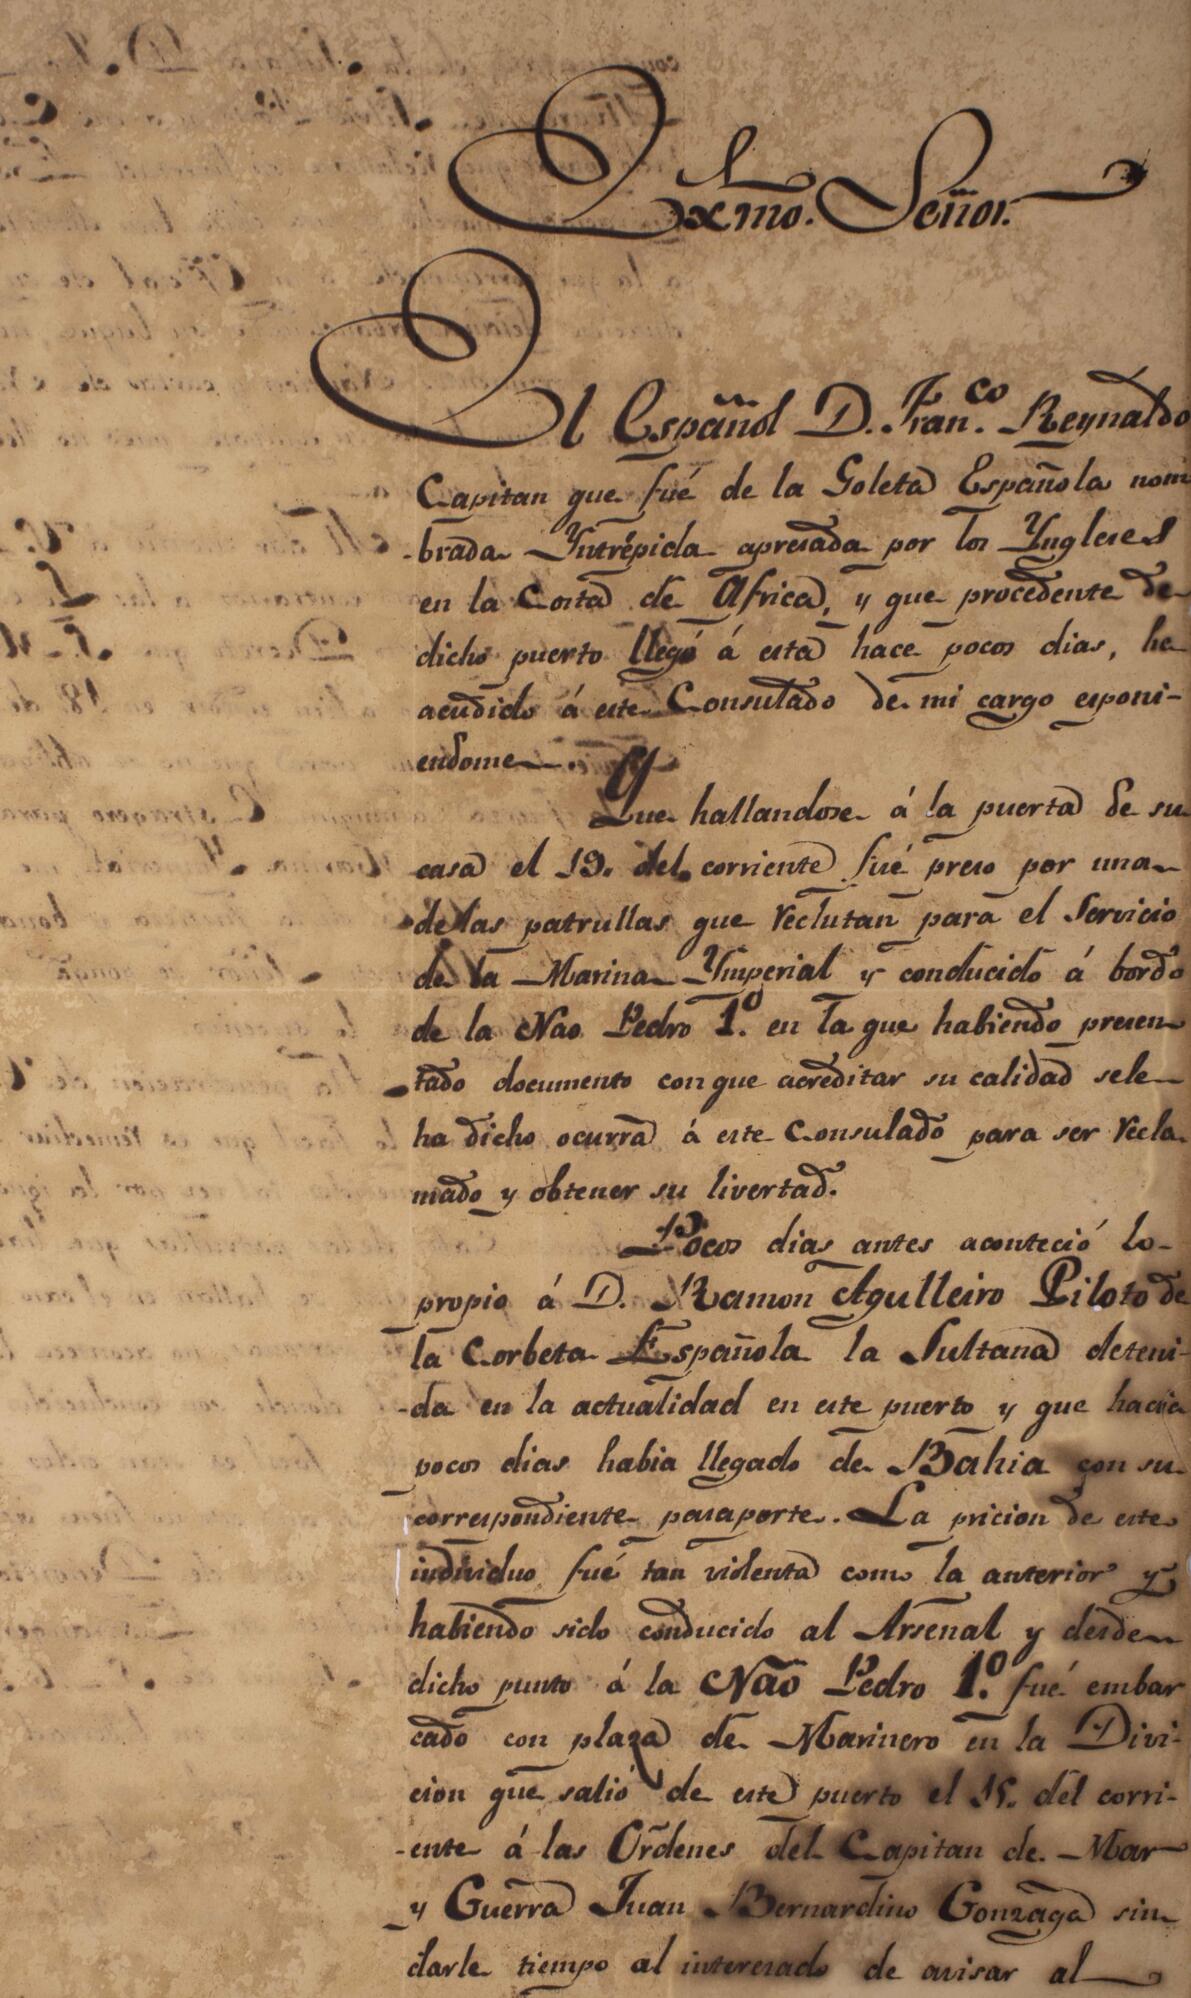 Exmo. Señor.
El Español D. Fran.co Reynaldo
Capitan que fué de la Goleta Española nom
-brada Yntrépida apresada por los Yngleses
en la Costa de Africa, y que procedente de
dicho puerto llegó á esta hace pocos dias, ha
acudido á este Consulado de mi cargo esponi-
endome.
Que hallandose á la puerta de su
casa el 19. del corriente fué preso por una
de las patrullas que reclutan para el Servicio
de la Marina Ymperial y conducido á bordo
de la Nao Pedro 1.º en la que habiendo presen
tado documento con que acreditar su calidad sele
ha dicho ocurra á este Consulado para ser recla
mado y obtener su livertad.
Pocos dias antes aconteció lo
propio á D. Ramon Agulleiro Piloto de
la Corbeta Española la Sultana deteni-
-da en la actualidad en este puerto y que hacia
pocos dias habia llegado de Bahia con su
correspondiente pasaporte. La pricion de este
individuo fué tan violenta como la anterior y
habiendo sido conducido al Arsenal y desde
dicho punto á la Nao Pedro 1.º fué embar
cado con plaza de Marinero en la Divi-
cion que salió de este puerto el 15. del corri-
-ente á las Ordenes del Capitan de Mar
y Guerra Juan Bernardino Gonzaga sin
darle tiempo al interesado de avisar al